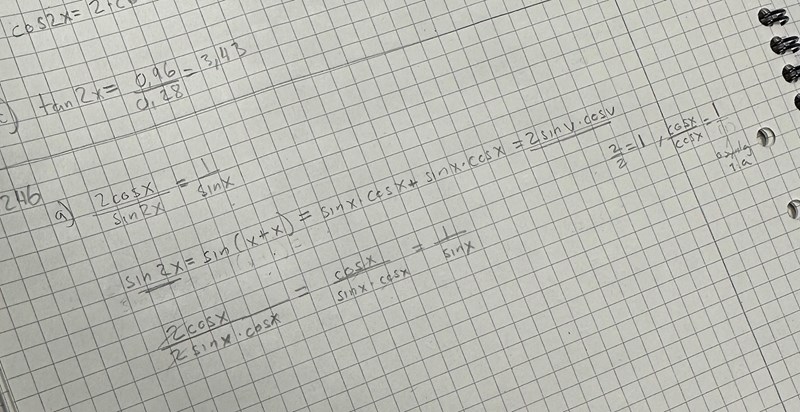 cos2x = 2·c
c) tan2x = 0,96/0,28 = 3,43
246 a) 2cosx/sin2x = 1/sinx
sin2x = sin(x+x) = sinx·cosx + sinx·cosx = 2sinv·cosv
2/2 = 1 , cosx/cosx = 1
2cosx/2sinx·cosx = cosx/sinx·cosx = 1/sinx